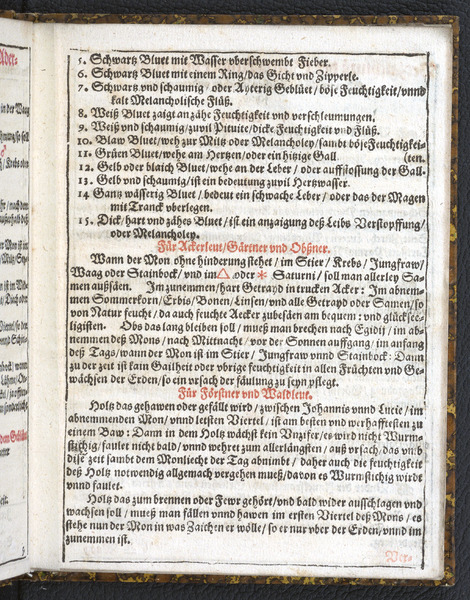 5. Schwartz Bluet mit Wasser vberschwembt Fieber.
6. Schwartz Bluet mit einem Ring/das Gicht vnd Zipperle.
7. Schwartz vnd schaumig/ oder Ayterig Geblüet/ böse Feuchtigkeit/vnnd
kalt Melancholische Flüß.
8. Weiß Bluet zaigt an zähe Feuchtigkeit vnd verschleumungen.
9. Weiß vnd schaumig/zuvil Pituite/dicke Feuchtigkeit vnd Flüß.
10. Blaw Bluet/weh zur Miltz oder Melancholey/sambt böse Feuchtigkei-
11. Grüen Bluet/wehe am Hertzen/oder ein hitzige Gall. (ten.
12. Gelb oder blaich Bluet/wehe an der Leber / oder auffstossung der Gall.
13. Gelb vnd schaumig/ist ein bedeutung zuvil Hertzwasser.
14 Gantz wässerig Bluet / bedeut ein schwache Leber / oder das der Magen
mit Tranck vberlegen.
15. Dick/ hart vnd zähes Bluet/ist ein anzaigung deß Leibs Verstopffung/
oder Melancholey.
Für Ackerleut/Gärtner vnd Obßner.
Wann der Mon ohne hinderung stehet / im Stier / Krebs / Jungfraw/
Waag oder Stainbock/ vnd im △ oder ✶ Saturni / soll man allerley Sa-
men außsäen. Im zunemmen/hart Getrayd in trucken Acker: Im abnem-
men Sommerkorn/Erbis/Bonen/Linsen/vnd alle Getrayd oder Samen/so
von Natur feucht/ da auch feuchte Aecker zubesäen am bequem: vnd glücksee-
ligisten. Obs das lang bleiben soll / mueß man brechen nach Egidij / im ab-
nemmen deß Mons / nach Mitternacht / vor der Sonnen auffgang/ im anfang
deß Tags/wann der Mon ist im Stier / Jungfraw vnnd Stainbock: Dann
zu der zeit ist kain Gailheit oder vbrige feuchtigkeit in allen Früchten vnd Ge-
wächsen der Erden/so ein vrsach der fäulung zu seyn pflegt.
Für Förstner vnd Waldleut.
Holtz das gehawen oder gefällt wird / zwischen Johannis vnnd Lucie / im
abnemmenden Mon/ vnnd letsten Viertel/ ist am besten vnd werhafftesten zu
einem Baw: Dann in dem Holtz wächst kein Vnzifer/es wird nicht Wurm-
stichig/ faulet nicht bald/ vnnd wehret zum allerlängsten / auß vrsach/das vmb
dise zeit sambt dem Monliecht der Tag abnimbt / daher auch die feuchtigkeit
deß Holtz notwendig allgemach vergehen mueß/davon es Wurmstichig wirdt
vnnd faulet.
Holtz das zum brennen oder Fewr gehört/vnd bald wider ausschlagen vnd
wachsen soll / mueß man fällen vnnd hawen im ersten Viertel deß Mons / es
stehe nun der Mon in was Zaichen er wölle/ so er nur vber der Erden/vnnd im
zunemmen ist.